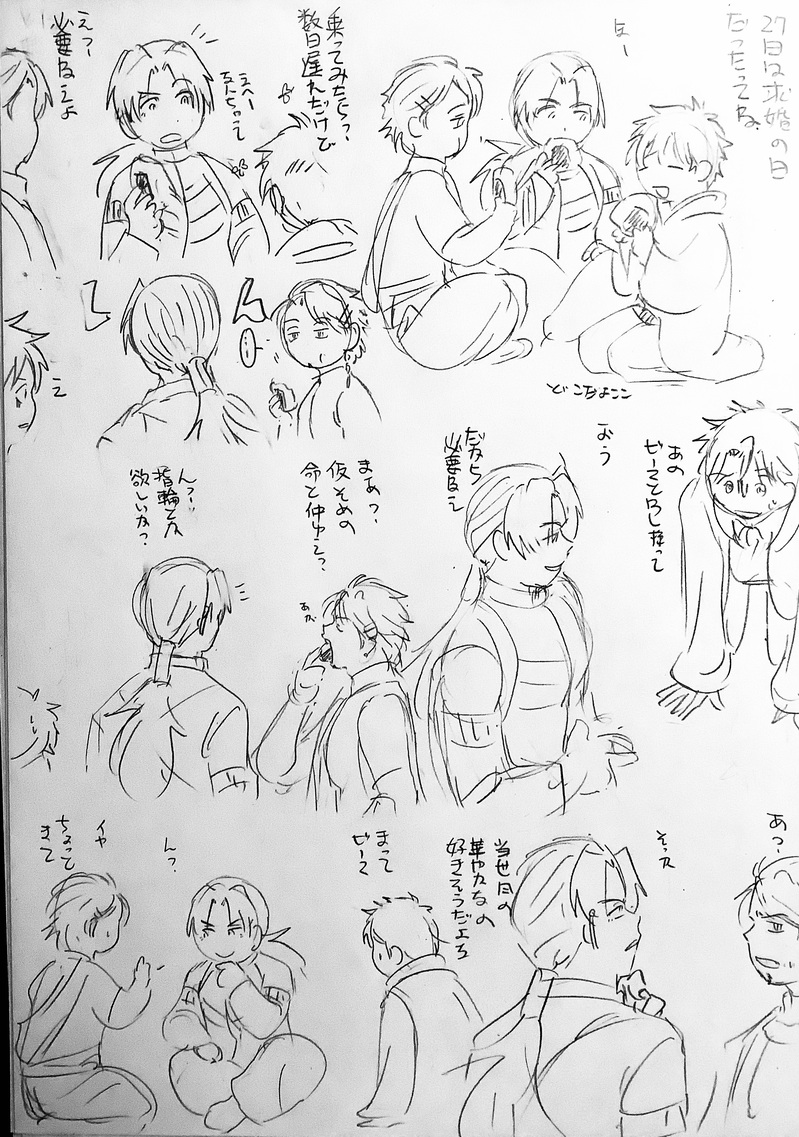 27日は求婚の日
だったってね
ほー
乗ってみたらっ?
数日遅れだけど
えへー
なんちゃって
えっー
必要なくよ
ん
え
どこだよここ
あの
ビーマと口し持って
おう
だから
必要ねえ
まあっ、
仮そめの
命と仲ゆえ?
あが
んっー…
指輪とか
欲しいか?
あっ、
そっか
当世風の
華やかなの
好きそうだよな
まって
ビーマ
んっ?
イヤ
ちょって
まて